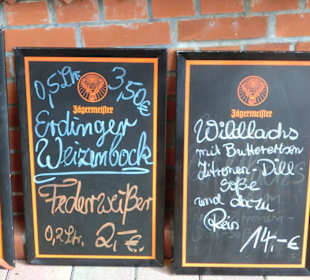 0,5Ltr. 3,50€
Jägermeister
Erdinger
Weizenbock
Federweißer
0,2Ltr. 2,-€.
Jägermeister
Wildlachs
mit Buttererbsen
Zitronen-Dill-
Soße
und dazu
Reis
14,-€